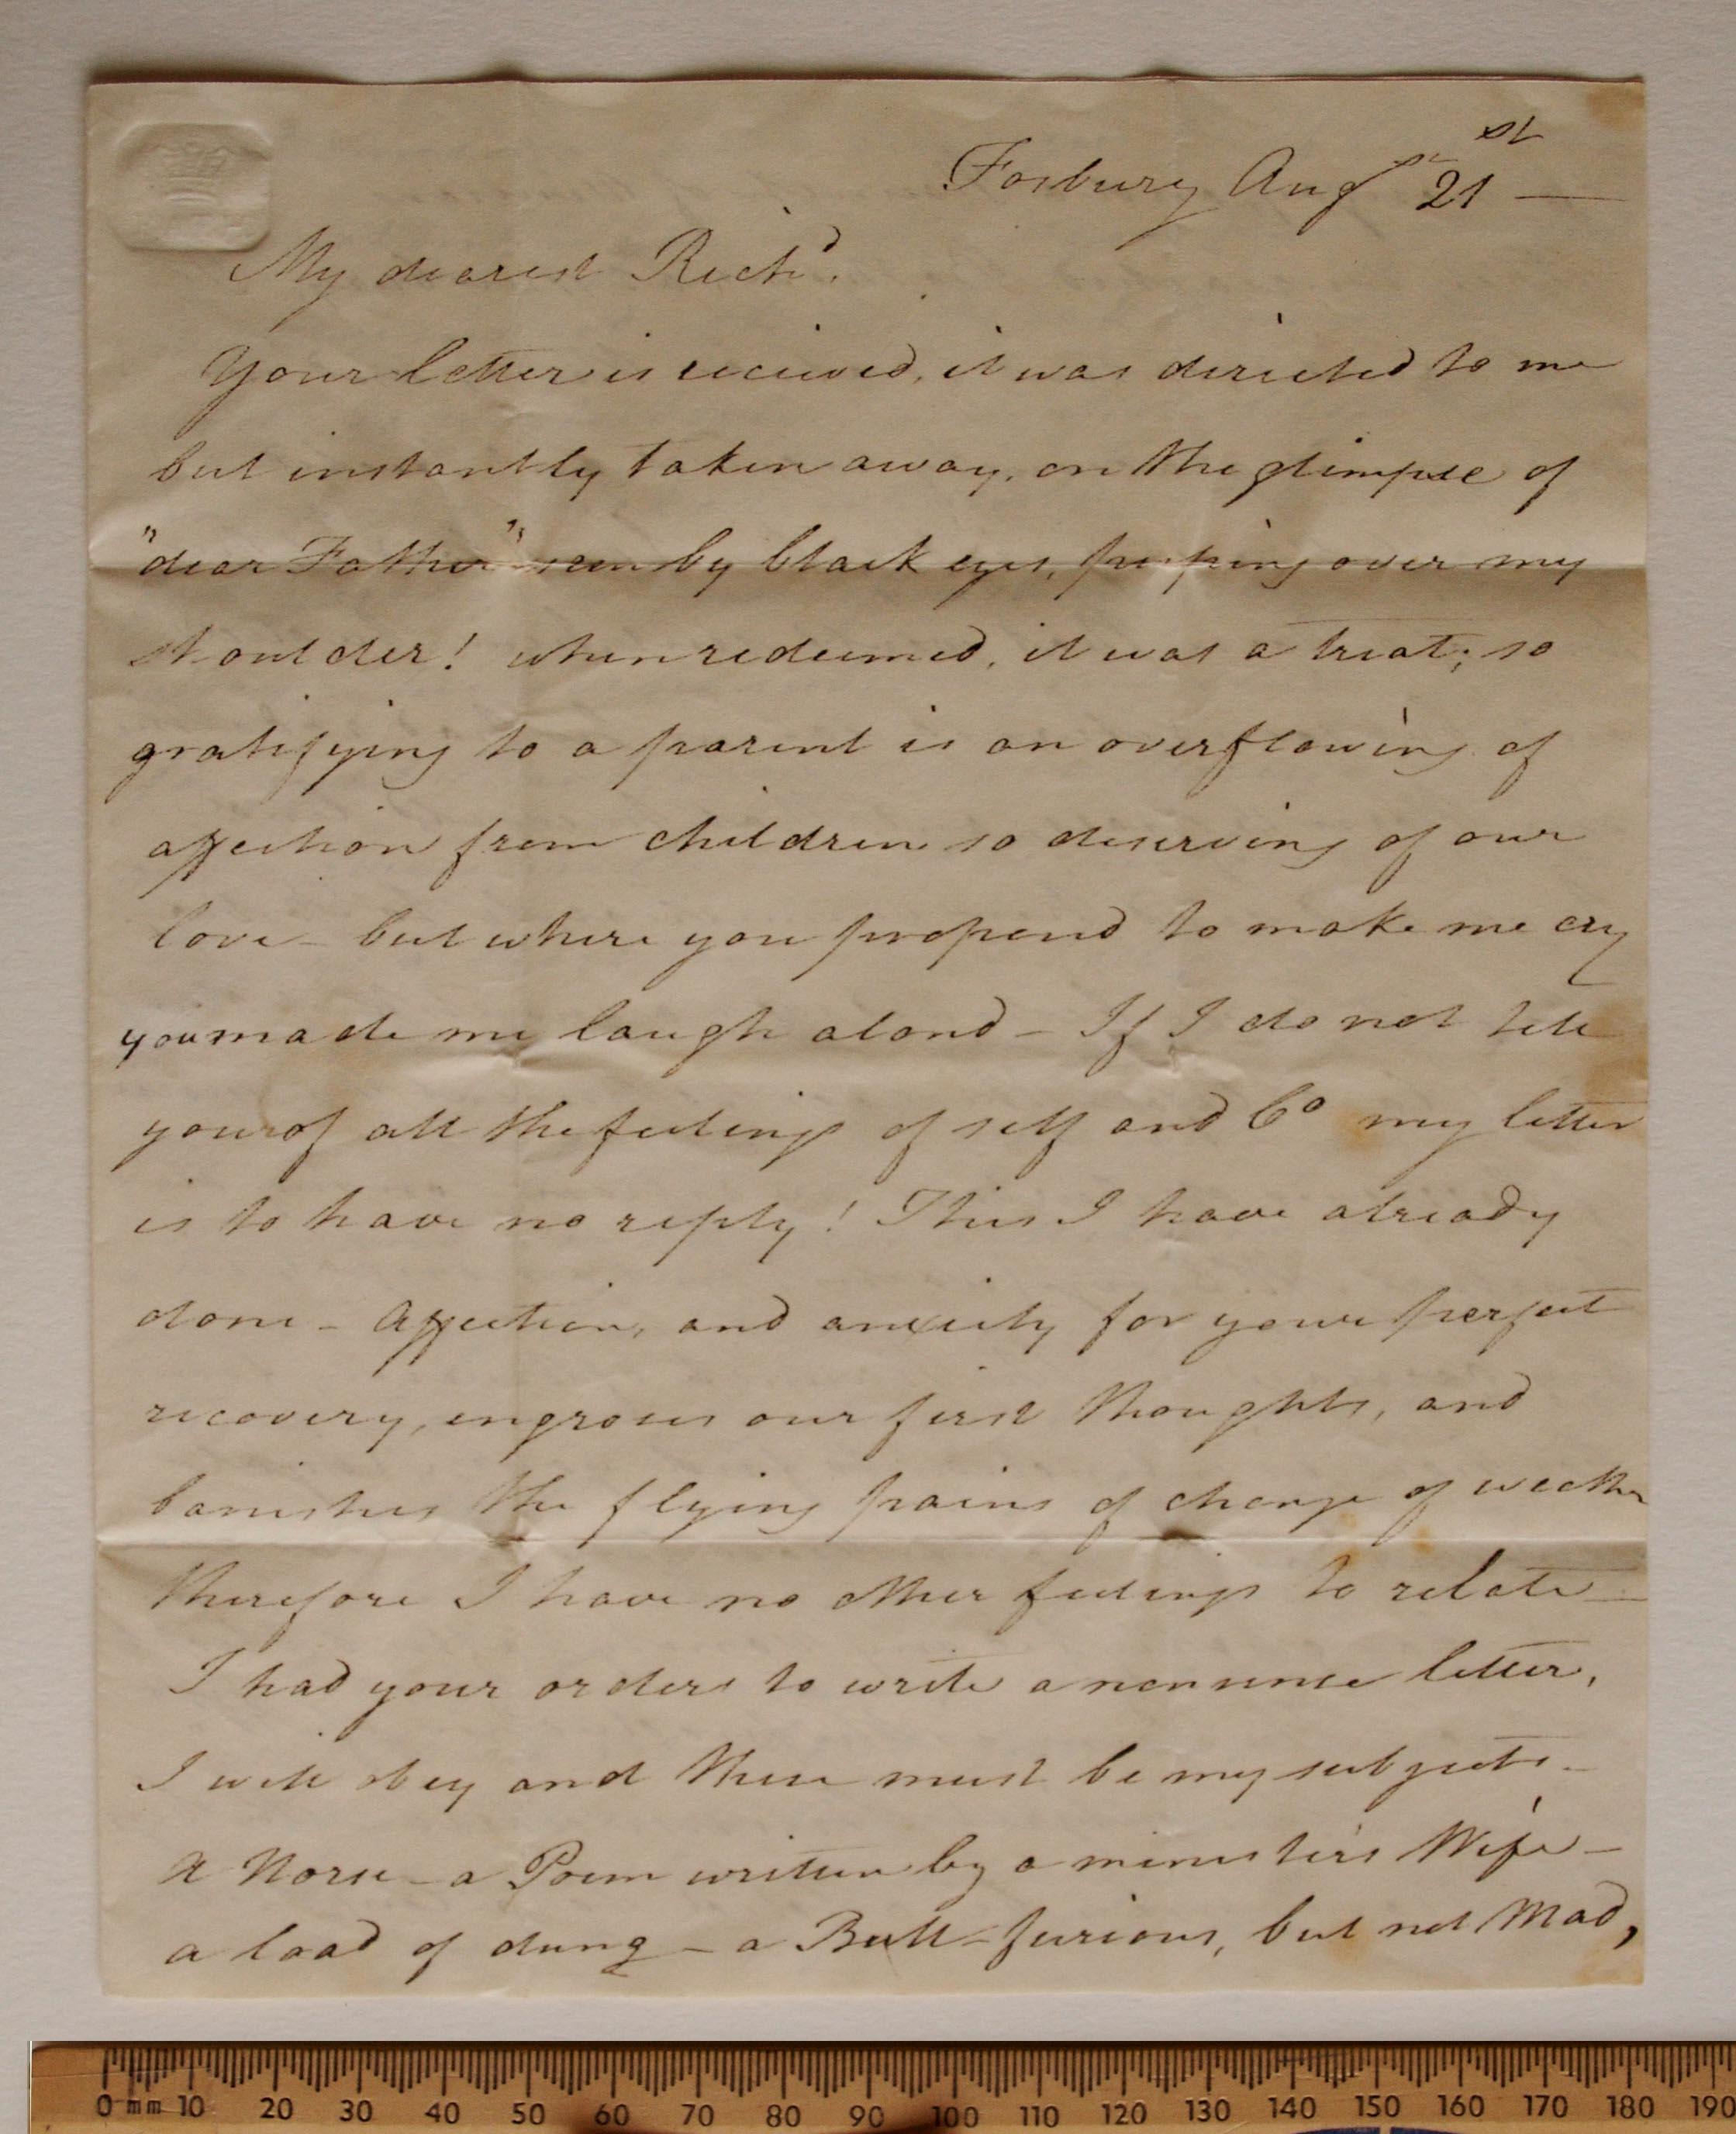 Fosbury Augst 21st —
My dearest Richd.
Your letter is recieved, it was directed to me
but instantly taken away, on the glimpse of
"dear Father" seen by black eyes, peeping over my
shoulder! when redeemed, it was a treat; so
gratifying to a parent is an overflowing of
affection from children so deserving of our
love – but where you propend to make me cry
you made me laugh aloud – If I do not tell
you of all the feelings of self and Co my letter
is to have no reply! This I have already
done – Affection, and anxiety for your perfect
recovery, engroses our first thoughts, and
banishes the flying pains of change of weather
therefore I have no other feelings to relate —
I had your orders to write a nonsense letter,
I will obey and these must be my subjects –
A Horse – a Poem written by a minister's Wife –
a load of dung – a Bull – furious, but not Mad,
0 mm 10 20 30 40 50 60 70 80 90 100 110 120 130 140 150 160 170 180 190